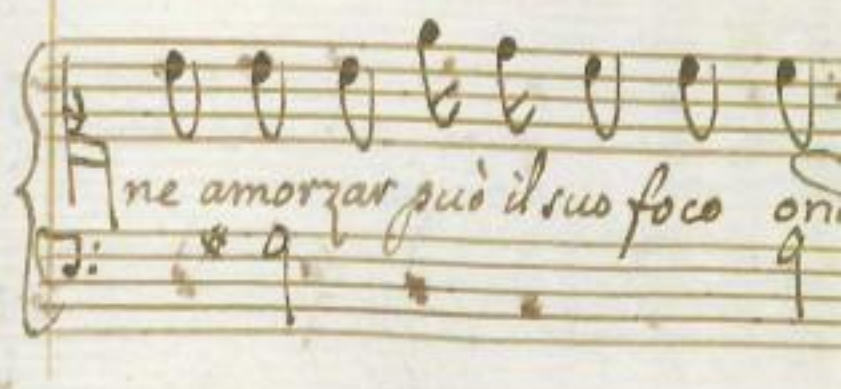 ne amorzar può il suo foco on